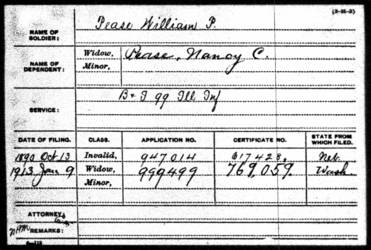 (3-35-3)
NAME OF SOLDIER: Pease William P.
NAME OF DEPENDENT: Widow, Pease, Nancy C.
Minor,
SERVICE: B + I 99 Ill Inf
DATE OF FILING. CLASS. APPLICATION NO. CERTIFICATE NO. STATE FROM WHICH FILED.
1890 Oct 13 Invalid, 947,014 617428. Neb.
1913 Jan 9 Widow, 999499 769,059. Wash.
Minor,
ATTORNEY:
REMARKS: